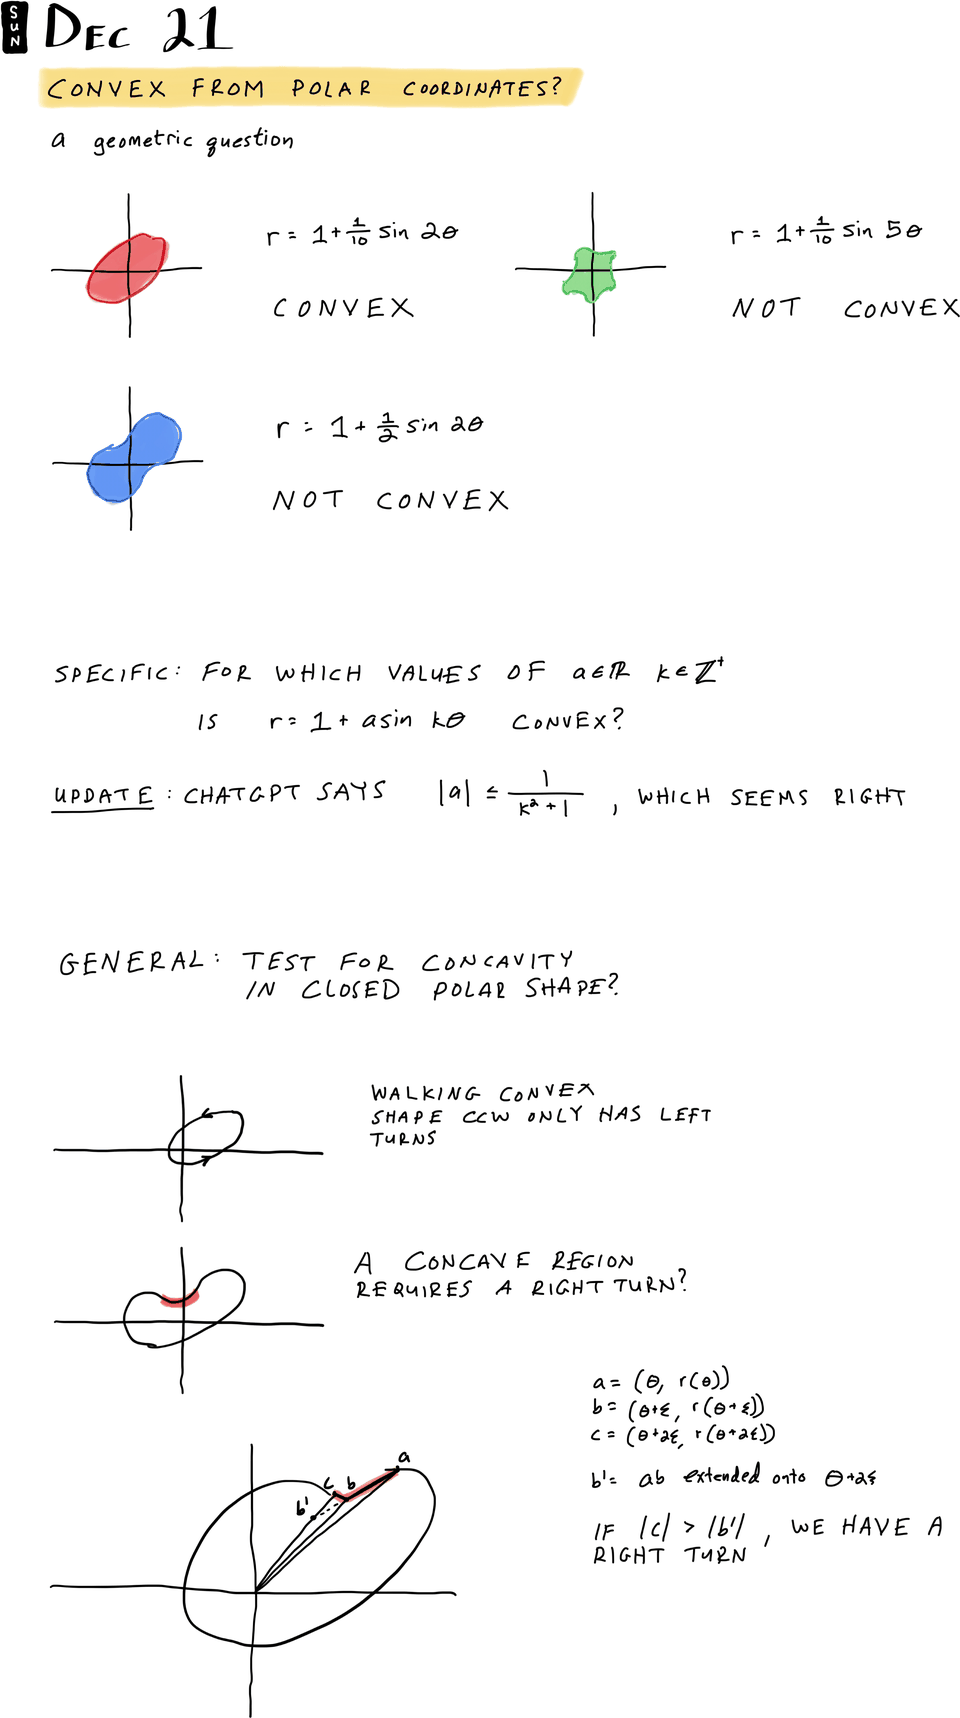 SUN
DEC 21
CONVEX FROM POLAR COORDINATES?
a geometric question
r = 1 + 1/10 sin 2θ
CONVEX
r = 1 + 1/10 sin 5θ
NOT CONVEX
r = 1 + 1/2 sin 2θ
NOT CONVEX
SPECIFIC: FOR WHICH VALUES OF a∈ℝ k∈ℤ⁺
IS r = 1 + a sin kθ CONVEX?
UPDATE: CHATGPT SAYS |a| ≤ 1/(k²+1), WHICH SEEMS RIGHT
GENERAL: TEST FOR CONCAVITY
IN CLOSED POLAR SHAPE?
WALKING CONVEX
SHAPE CCW ONLY HAS LEFT
TURNS
A CONCAVE REGION
REQUIRES A RIGHT TURN?
a = (θ, r(θ))
b = (θ+ε, r(θ+ε))
c = (θ+2ε, r(θ+2ε))
b' = ab extended onto θ+2ε
IF |c| > |b'|, WE HAVE A
RIGHT TURN
a
c b
b'